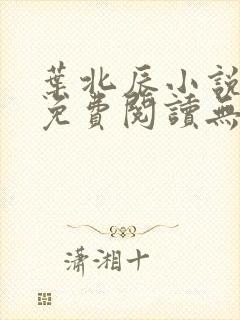 葉北辰小說
免費閱讀無
瀟湘十